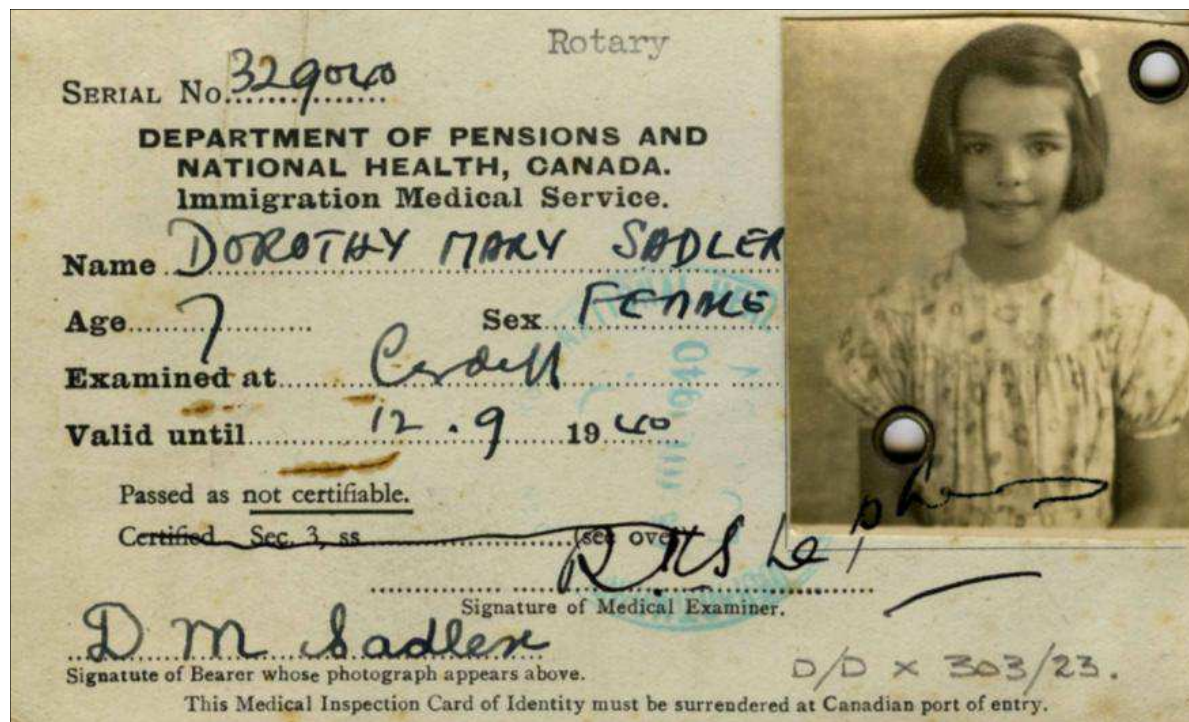 Rotary
SERIAL No. 329040
DEPARTMENT OF PENSIONS AND
NATIONAL HEALTH, CANADA.
Immigration Medical Service.
Name DOROTHY MARY SADLER
Age 7 Sex FEMALE
Examined at
Valid until 12.9 1940
Passed as not certifiable.
Certified Sec. 3, ss (see over
Signature of Medical Examiner.
D M Sadler
Signatute of Bearer whose photograph appears above.
D/D x 303/23.
This Medical Inspection Card of Identity must be surrendered at Canadian port of entry.